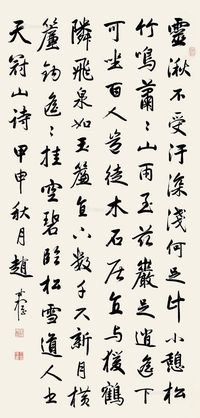 靈湫不受汙深淺何足計小憩松
竹鳴蕭〻山雨至茲巖足逍遙下
可坐百人豈徒木石居且與猨鶴
隣飛泉如玉簾直下數千尺新月橫
簾鉤遙〻挂空碧臨松雪道人书
天冠山诗甲申秋月趙